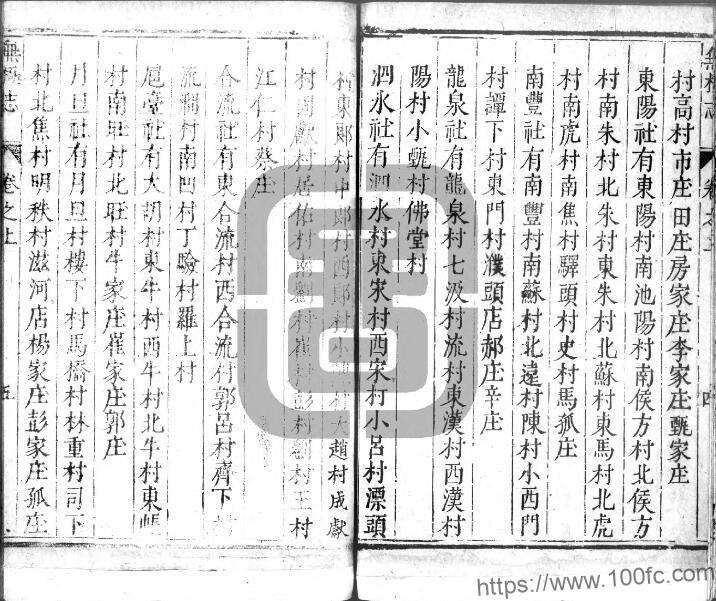 村高村市庄田庄房家庄李家庄甄家庄
東陽社有東陽村南池陽村南侯方村北侯方
村南朱村北朱村東朱村北蘇村東馬村北虎
村南虎村南焦村驛頭村史村馬狐庄
南豐社有南豐村南蘇村北遠村陳村小西門
村譚下村東門村濮頭店郝庄辛庄
龍泉社有龍泉村七汲村流村東漢村西漢村
陽村小甄村佛堂村
泗水社有泗水村東宋村西宋村小呂村漂頭
村東郞村中郞村西郞村小村大趙村成獻
村固献村居佑村南劉村崔村彭村劉村王村
江仁村蔡庄
合流社有東合流村西合流村郭呂村齊下村
流澗村南凹村丁驗村羅上村
扈臺社有大胡村東牛村西牛村北牛村東
村南旺村北旺村牛家庄崔家庄郭庄
月旦社有月旦村樓下村馬橋村林重村司下
村北焦村明秩村滋河店楊家庄彭家庄狐庄
無極志
卷之上
五
https://www.100fc.com